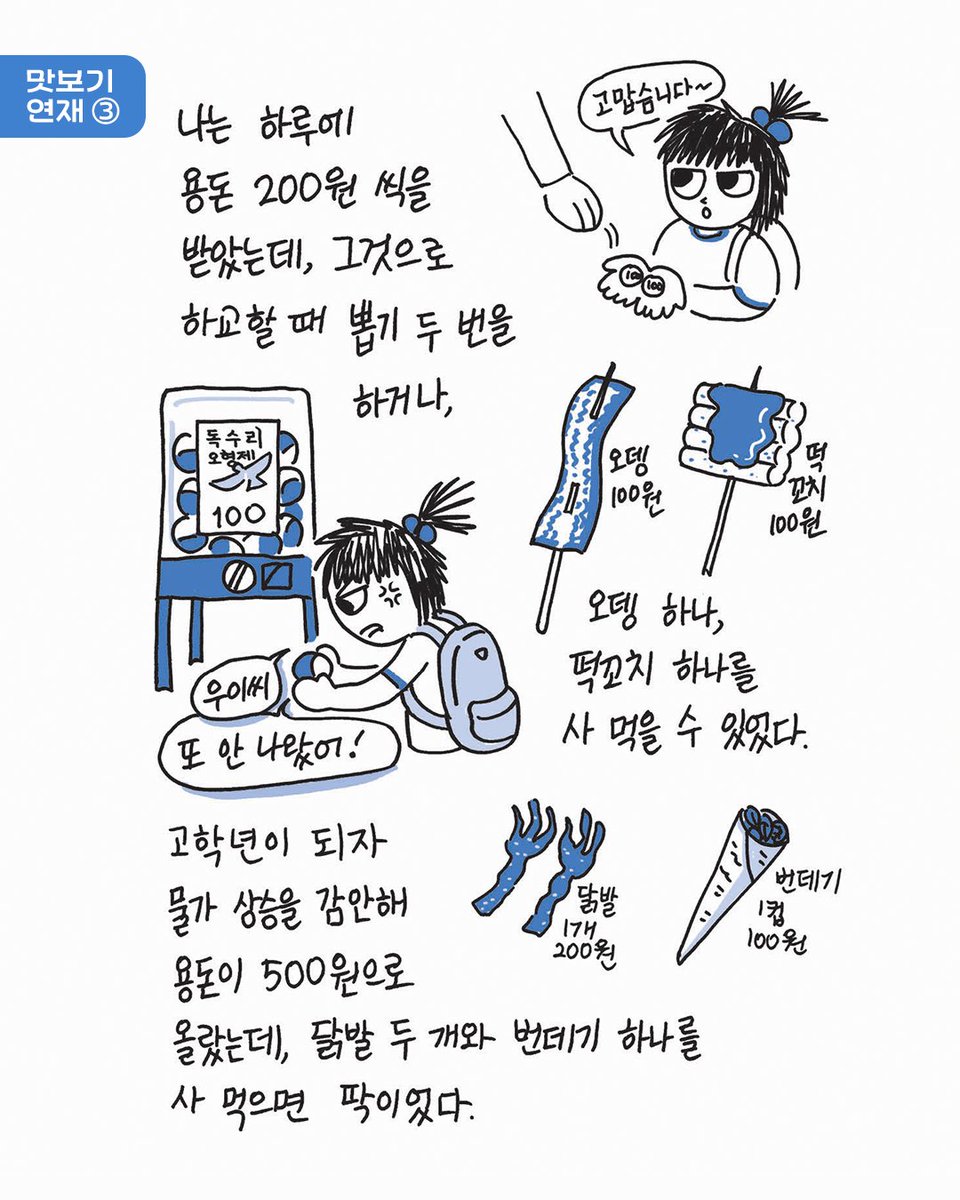 맛보기
연재 ③
나는 하루에
용돈 200원 씩을
받았는데, 그것으로
하교할 때 뽑기 두 번을
하거나,
고맙습니다~
100 100
독수리
오형제
100
우이씨
또 안 나왔어!
오뎅
100원
떡
꼬치
100원
오뎅 하나,
떡꼬치 하나를
사 먹을 수 있었다.
고학년이 되자
물가 상승을 감안해
용돈이 500원으로
올랐는데, 닭발 두 개와 번데기 하나를
사 먹으면 딱이었다.
닭발
1개
200원
번데기
1컵
100원